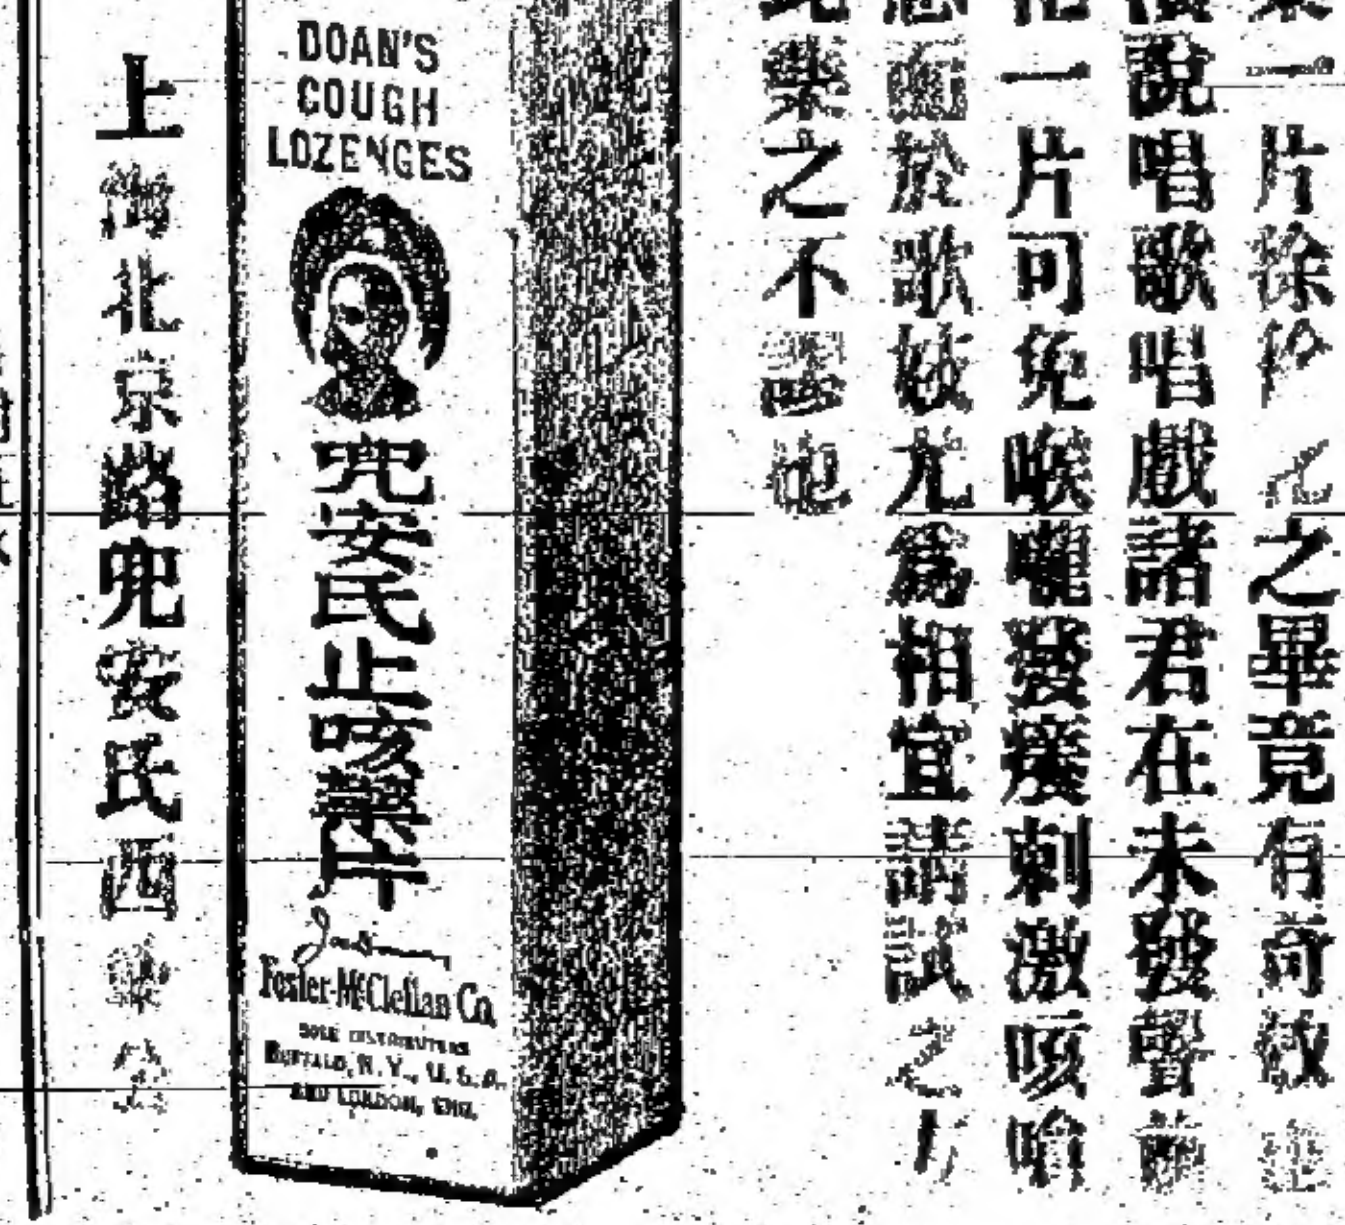 一片徐徐化之畢竟有奇效
說唱歌唱戲諸君在未發聲前
一片可免喉嚨發癢刺激咳嗆
於歌妓尤爲相宜請試之方
藥之不謬也
DOAN'S
COUGH
LOZENGES
兜安氏止咳藥片
Foster-McClellan Co.
SOLE DISTRIBUTERS
BUFFALO, N. Y., U. S. A.
AND LONDON, ENG.
上海北京路兜安氏西藥公